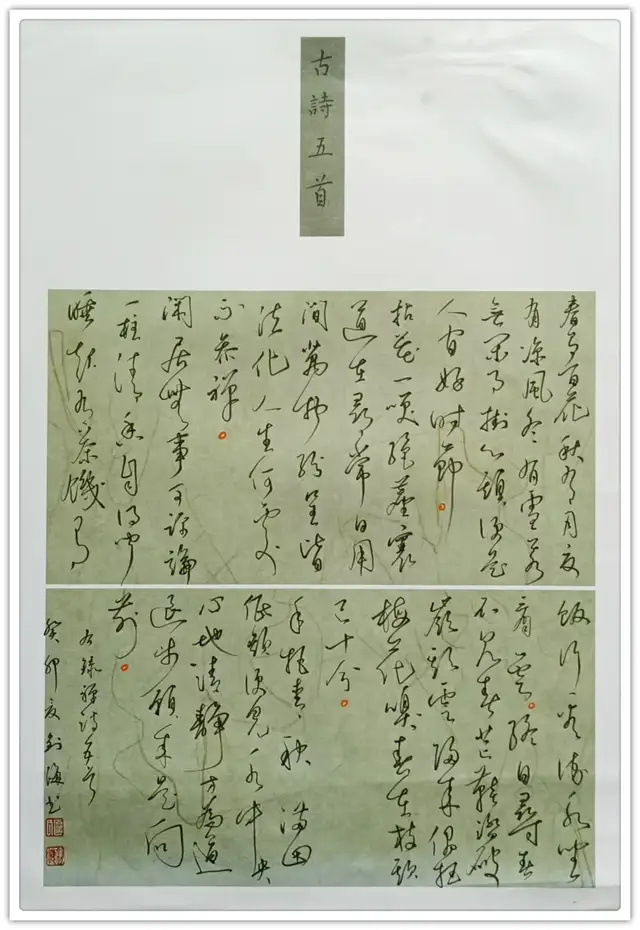 古詩五首
春有百花秋有月夏
有涼風冬有雪若
無閑事掛心頭便是
人間好時節
拈花一笑絕塵寰
道在尋常日用
間萬物紛呈皆
法化人生何處
不參禪
閑居無事可評論
一炷清香自得聞
睡起有茶饑有
飯行看流水坐
看雲終日尋春
不見春芒鞋踏破
嶺頭雲歸來偶把
梅花嗅春在枝頭
已十分
手把青秧滿田
低頭便見水中央
心地清靜方為道
退步原來是向
前
右錄禪詩五首
癸卯夏劉海書